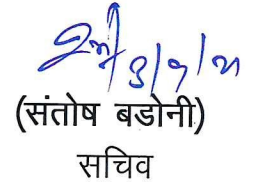 3/9/21
(संतोष बडोनी)
सचिव